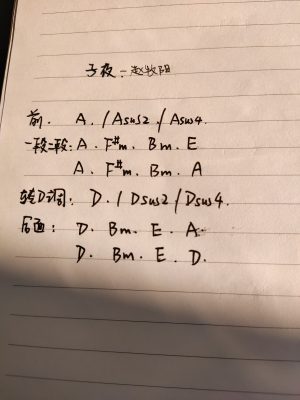 子夜 - 赵牧阳
前. A. / Asus2. / Asus4.
一段二段: A. F#m. Bm. E
A. F#m. Bm. A
转D调: D. / Dsus2 / Dsus4.
后面: D. Bm. E. A.
D. Bm. E. D.